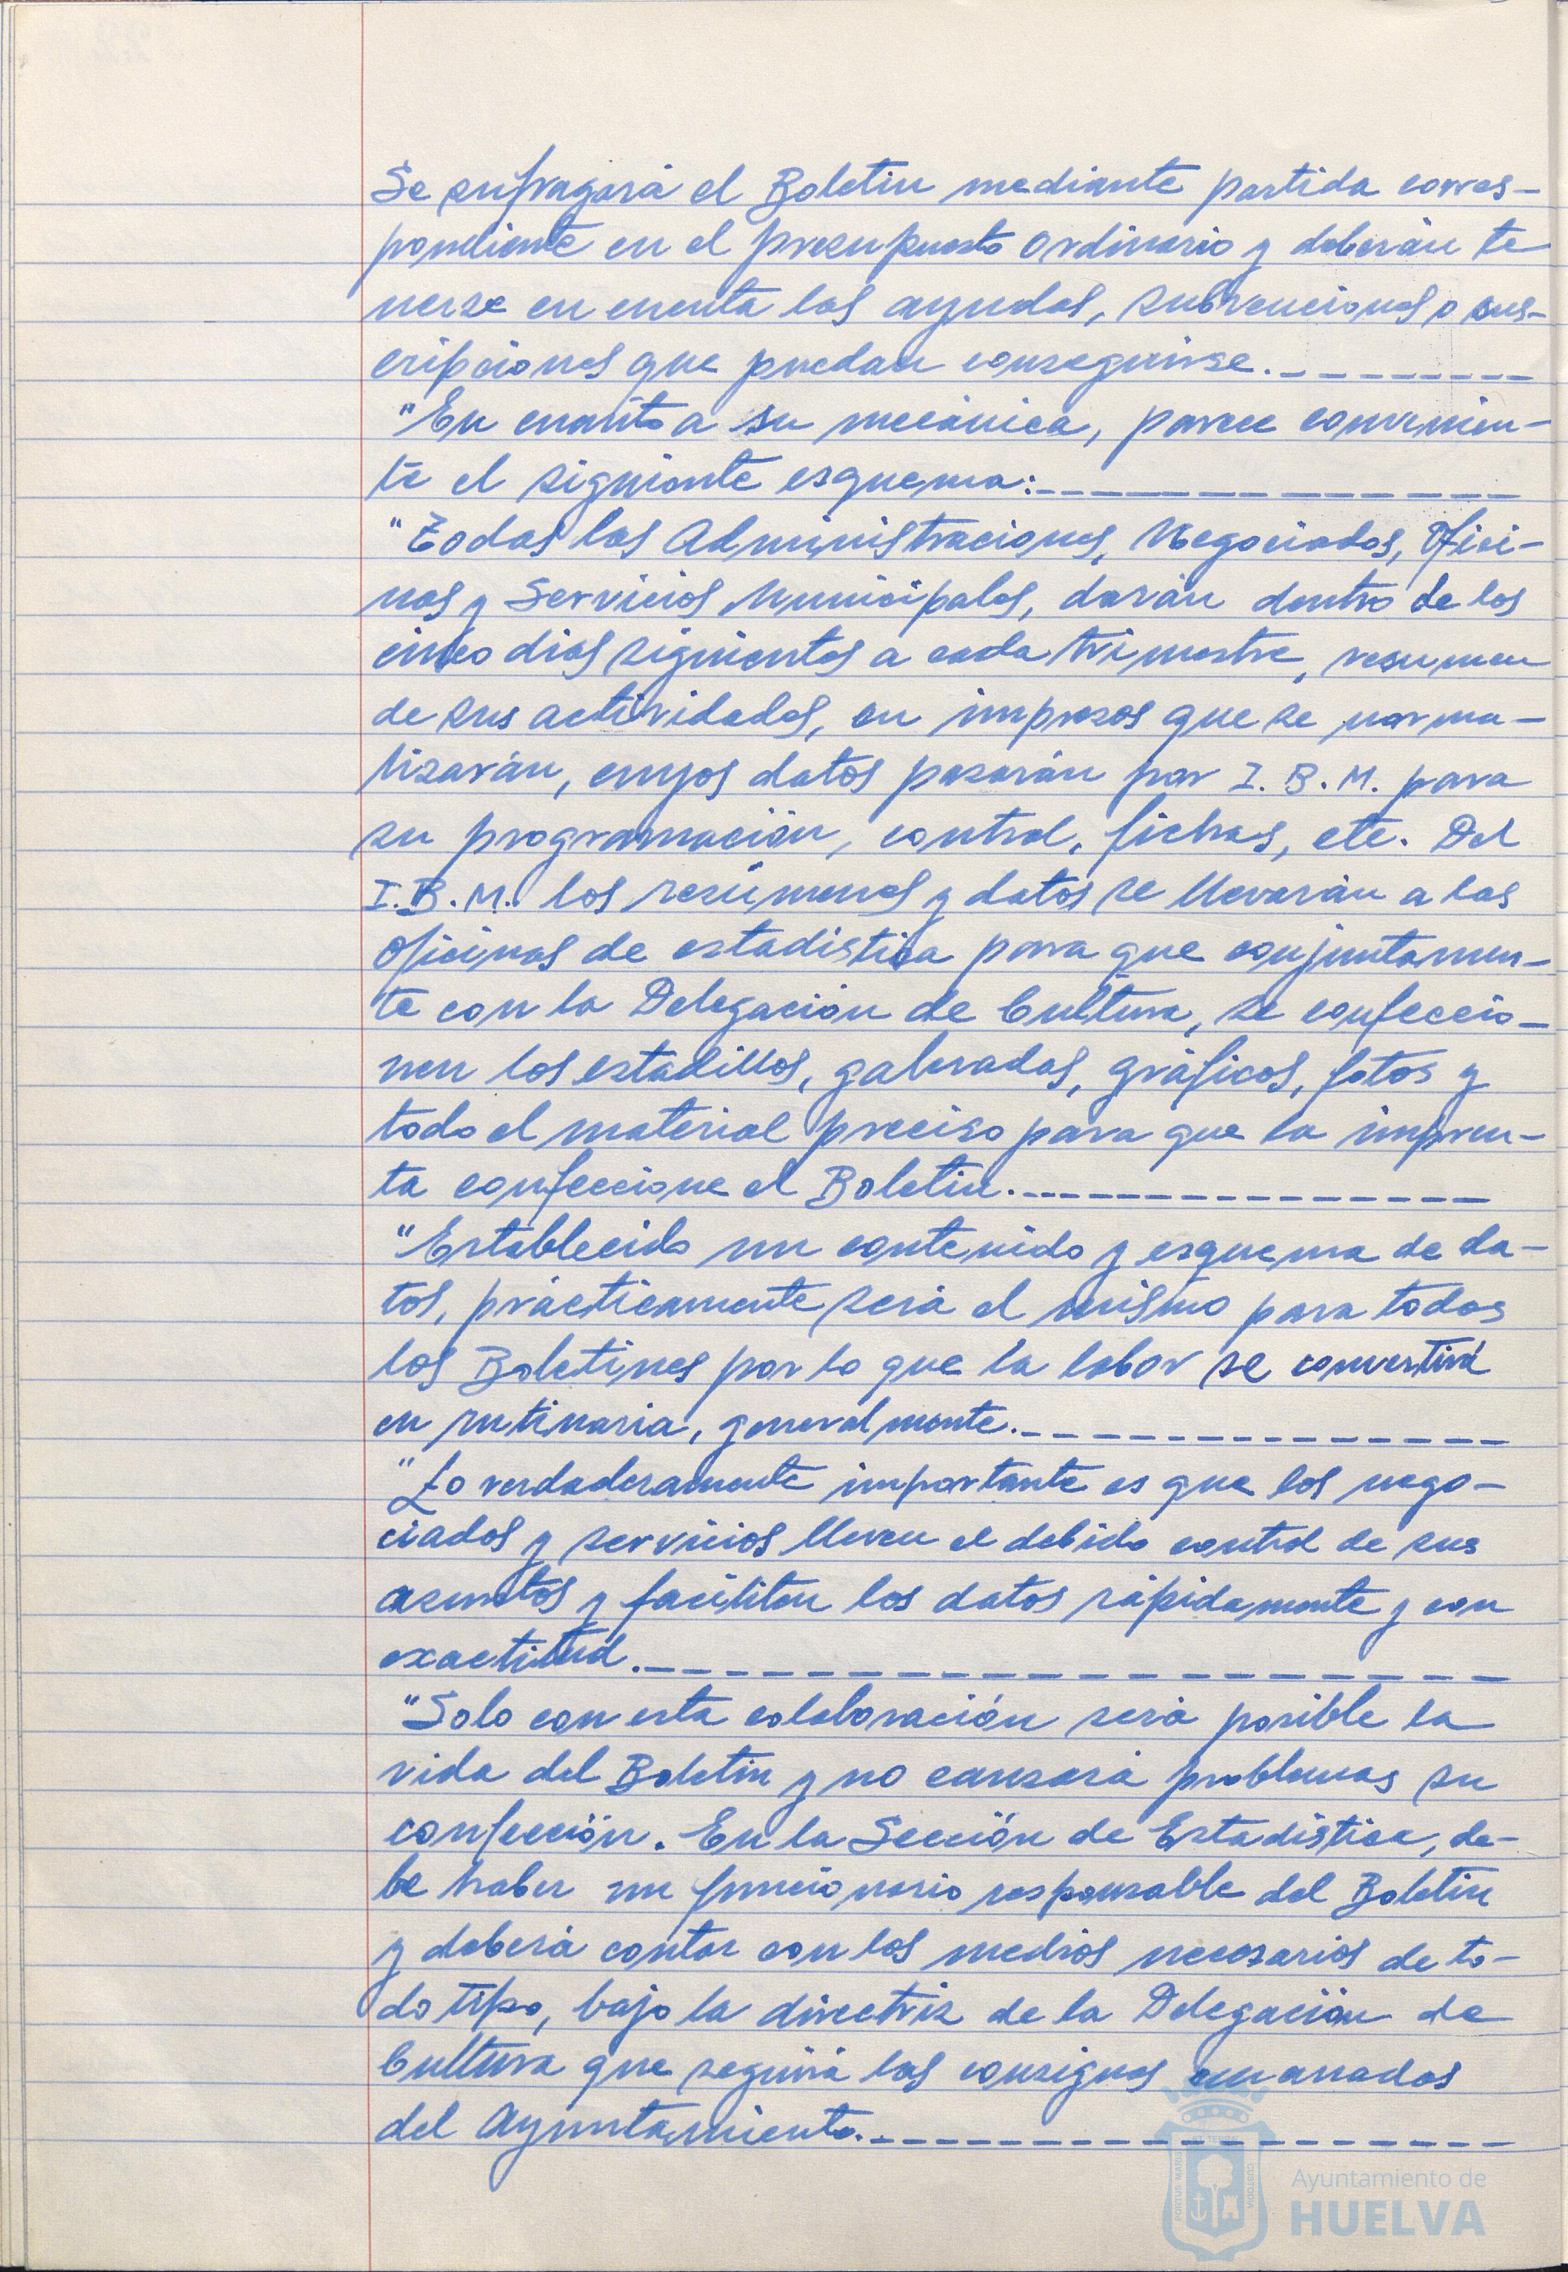 Se sufragará el Boletin mediante partida corres-
pondiente en el presupuesto ordinario y deberán te
nerse en cuenta las ayudas, subvenciones o sus-
cripciones que puedan conseguirse.
"En cuanto a su mecánica, parece convenien-
te el siguiente esquema:
"Todas las Administraciones, Negociados, Ofici-
nas y Servicios Municipales, darán dentro de los
cinco dias siguientes a cada trimestre, resumen
de sus actividades, en impresos que se norma-
lizarán, cuyos datos pasarán por I.B.M. para
su programación, control, fichas, etc. Del
I.B.M. los resúmenes y datos se llevarán a las
oficinas de estadistica para que conjuntamen-
te con la Delegación de Cultura, se confeccio-
nen los estadillos, galeradas, gráficos, fotos y
todo el material preciso para que la impren-
ta confeccione el Boletin.
"Establecido un contenido y esquema de da-
tos, prácticamente será el mismo para todos
los Boletines por lo que la labor se convertirá
en rutinaria, generalmente.
"Lo verdaderamente importante es que los nego-
ciados y servicios lleven el debido control de sus
asuntos y faciliten los datos rápidamente y con
exactitud.
"Solo con esta colaboración será posible la
vida del Boletin y no causará problemas su
confección. En la Sección de Estadistica, de-
be haber un funcionario responsable del Boletin
y deberá contar con los medios necesarios de to-
do tipo, bajo la directriz de la Delegación de
Cultura que seguirá las consignas emanadas
del Ayuntamiento.
PORTUS MARIS
ET TERRAE
CUSTODIA
Ayuntamiento de
HUELVA